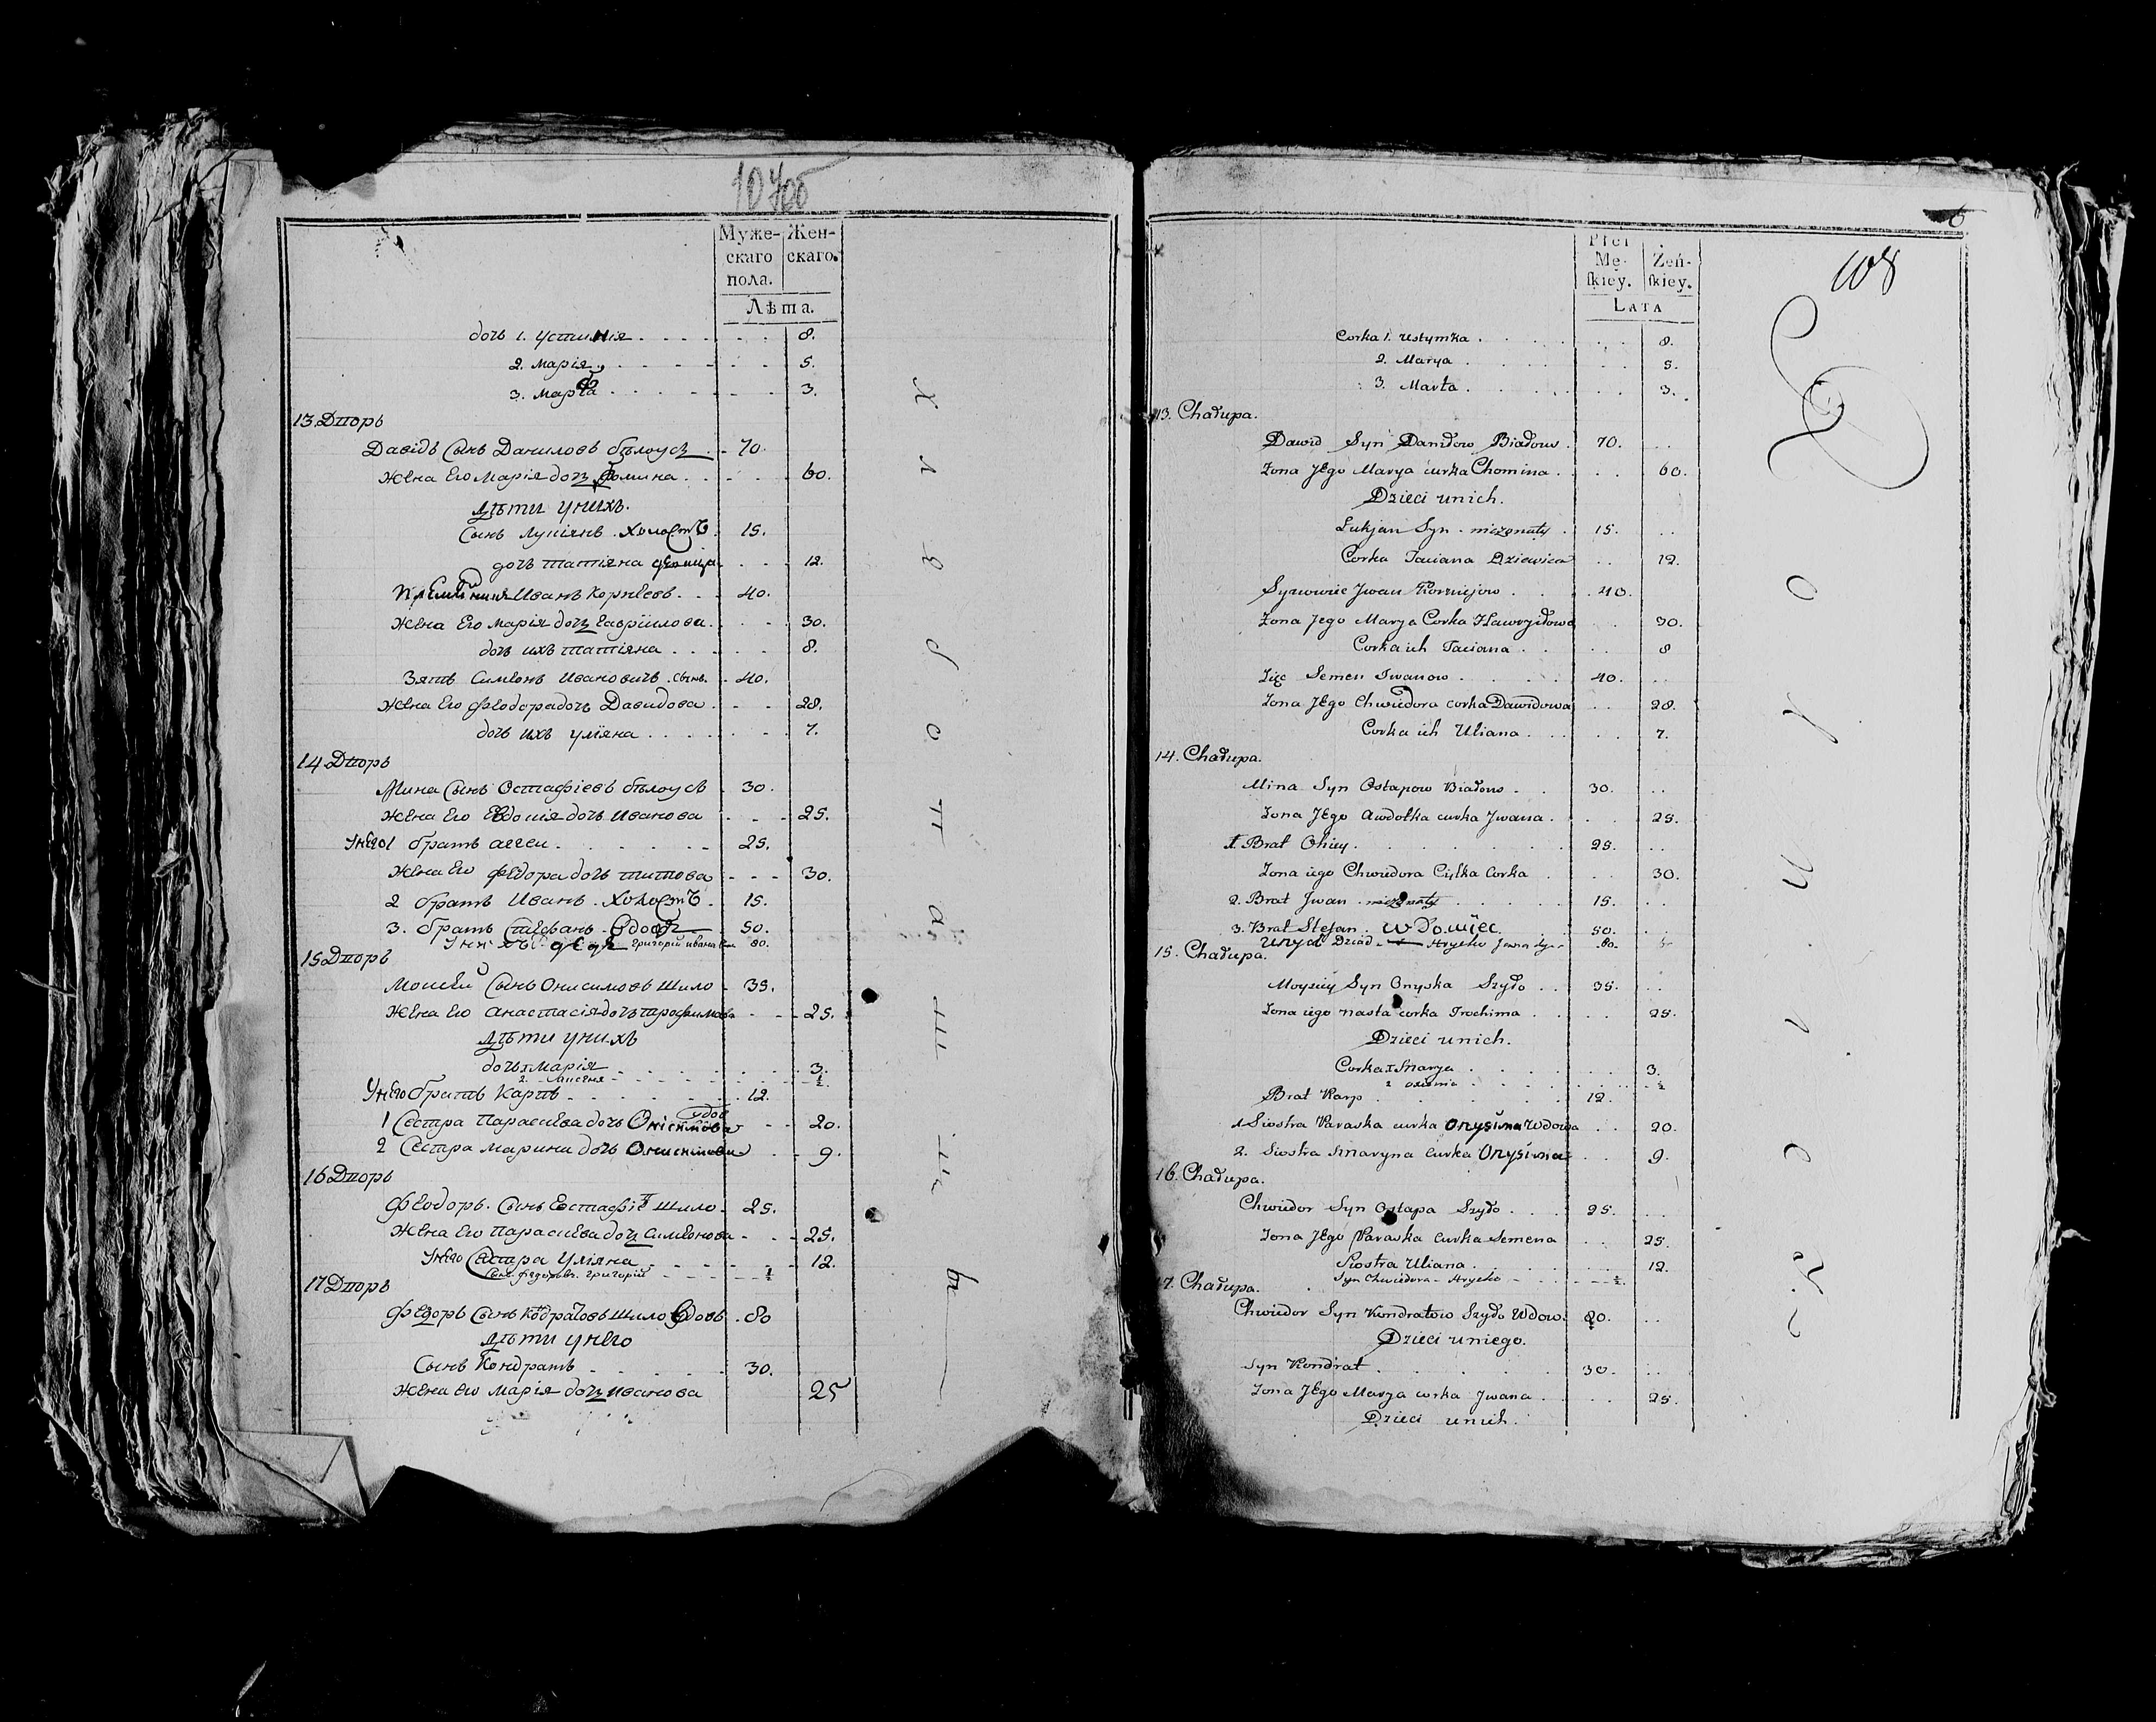 107об
Муже- Жен-
скаго скаго.
пола.
Лѣта.
дочь 1. Устинія 8.
2. Марія 5.
3. Марѳа 3.
13 Дворъ
Давідъ Сынъ Даниловъ бѣлоусъ 70.
Жена Его Марія дочь Фомина 60.
Дѣти унихъ.
Сынъ Лукіянъ. Холостъ 15.
дочь татіяна девица 12.
Племянникъ Иванъ Корнѣевъ 40.
Жена Его марія дочь Гавриилова 30.
дочь ихъ татіяна 8.
Зять Симеонъ Ивановичъ. Сынъ. 40.
Жена Его Феодора дочь Давидова 28.
дочь ихъ уліяна 7.
14 Дворъ
Мина Сынъ Остафіевъ бѣлоусъ 30.
Жена Его Евдокія дочь Иванова 25.
Унего 1 братъ аггей 25.
Жена Его Федора дочь титова 30.
2 братъ Иванъ. Холостъ 15.
3. братъ Стефанъ. Вдовъ 50.
Унихъ дедъ григорій ивана 80.
15 Дворъ
Моисей Сынъ Онисимовъ Шило 35.
Жена Его анастасія дочь трофимова 25.
Дѣти унихъ
дочь 1 Марія 3.
2. ½
Унего братъ Карпъ 12.
1 Сестра Параскева дочь Онісимова вдов 20.
2 Сестра марина дочь Онисимова 9.
16 Дворъ
Феодоръ. Сынъ Евстафіѣ Шило 25.
Жена Его Параскева дочь Симеонова 25.
Унего Сестра Уліяна 12.
Сынъ Федоровъ григорій ½
17 Дворъ
Федоръ Сынъ Кодратовъ Шило Вдовъ 80
Дѣти унего
Сынъ Кондратъ 30.
Жена его марія дочь Иванова 25
Х л ѣ б о п а ш ц ы
Płci
Mę- Żeń-
skiey. skiey.
LATA
108
Corka 1. Ustymka 8.
2. Marya 5.
3. Marta 3.
13. Chałupa.
Dawid Syn Daniłow Białous 70.
Zona Jego Marya curka Chomina 60.
Dzieci unich.
Lukjan Syn niezonaty 15.
Corka Taciana Dziewica 12.
Synowiec Jwan Korniejow 40.
Zona Jego Marya Corka Hawryłowa 30.
Corka ich Taciana 8
Zięc Semen Iwanow 40.
Zona JEgo Chwedora corka Dawidowa 28.
Corka ich Uliana 7.
14. Chałupa.
Mina Syn Ostapow Białous 30.
Zona JEgo Awdotka curka Jwana 25.
1. Brat Ohiey 25.
Zona iego Chwedora Citka Corka 30.
2. Brat Jwan niezonaty 15.
3. Brat Stefan. wdowiec 50.
unych Dziad Hryćko Jwana Syn 80.
15. Chałupa.
Moysiey Syn Onyska Szydo 35.
Zona iego nasta corka Trochima 25.
Dzieci unich.
Corka 1 Marya 3.
2 ½
Brat Karp 12.
1 Siostra Paraska curka Onysima Wdowa 20.
2. Siostra Maryna curka Onysima 9.
16. Chałupa.
Chwedor Syn Ostapa Szydo 25.
Zona JEgo Paraska curka Semena 25.
Siostra Uliana 12.
Syn Chwedora Hryćko ½
17. Chałupa.
Chwedor Syn Kondratow Szydo Wdow. 80.
Dzieci uniego.
Syn Kondrat 30.
Zona JEgo Marya corka Jwana 25.
Dzieci unich.